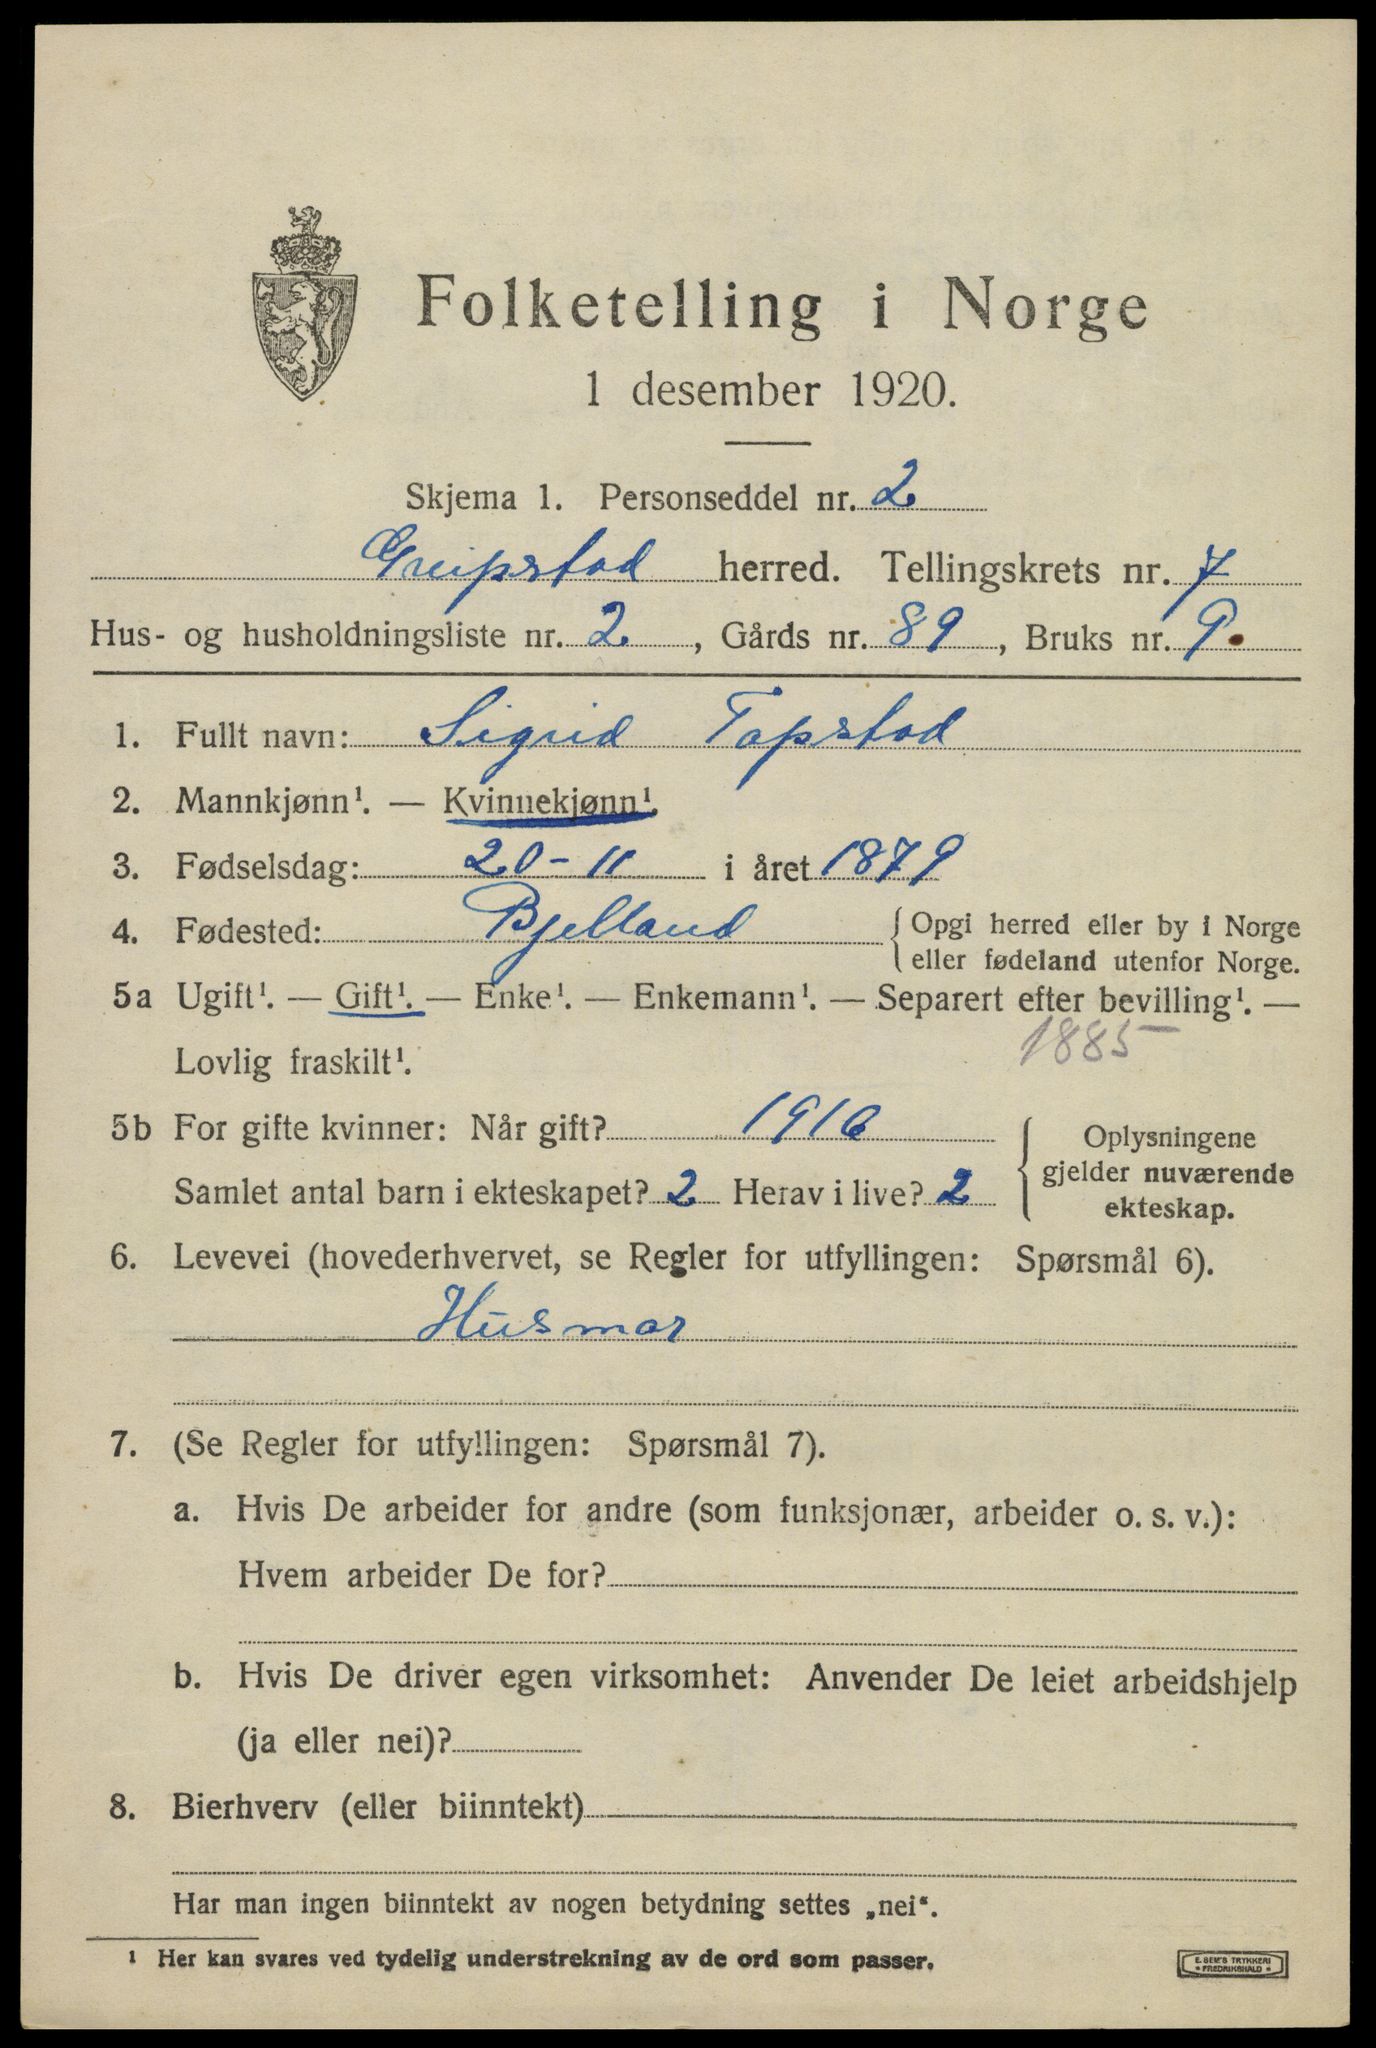 Folketelling i Norge
1 desember 1920.
Skjema 1. Personseddel nr. 2
Greipstad herred. Tellingskrets nr. 7
Hus- og husholdningsliste nr. 2, Gårds nr. 89, Bruks nr. 9.
1. Fullt navn: Sigrid Topstad
2. Mannkjønn¹. — Kvinnekjønn¹.
3. Fødselsdag: 20-11 i året 1879
4. Fødested: Bjelland { Opgi herred eller by i Norge
eller fødeland utenfor Norge.
5a Ugift¹. — Gift¹. — Enke¹. — Enkemann¹. — Separert efter bevilling¹. —
Lovlig fraskilt¹. 1885
5b For gifte kvinner: Når gift? 1916 { Oplysningene
gjelder nuværende
Samlet antal barn i ekteskapet? 2 Herav i live? 2
ekteskap.
6. Levevei (hovederhvervet, se Regler for utfyllingen: Spørsmål 6).
Husmor
7. (Se Regler for utfyllingen: Spørsmål 7).
a. Hvis De arbeider for andre (som funksjonær, arbeider o. s. v.):
Hvem arbeider De for?
b. Hvis De driver egen virksomhet: Anvender De leiet arbeidshjelp
(ja eller nei)?
8. Bierhverv (eller biinntekt)
Har man ingen biinntekt av nogen betydning settes „nei“.
¹ Her kan svares ved tydelig understrekning av de ord som passer.
E. SEM'S TRYKKERI
• FREDRIKSHALD •